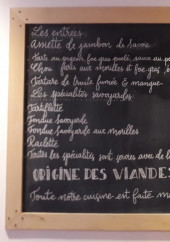 Les entrées
Assiette de jambon de Savoie
Tarte au pigeon foie gras poêlé, sauce au po
tarte aux morilles et foie gras,
Tartare de truite fumée & mangue
Les spécialités savoyardes
Tartiflette
Fondue Savoyarde
Fondue Savoyarde aux morilles
Raclette
Toutes les spécialités sont servies avec de la
ORIGINE DES VIANDES
Toute notre cuisine est faite m